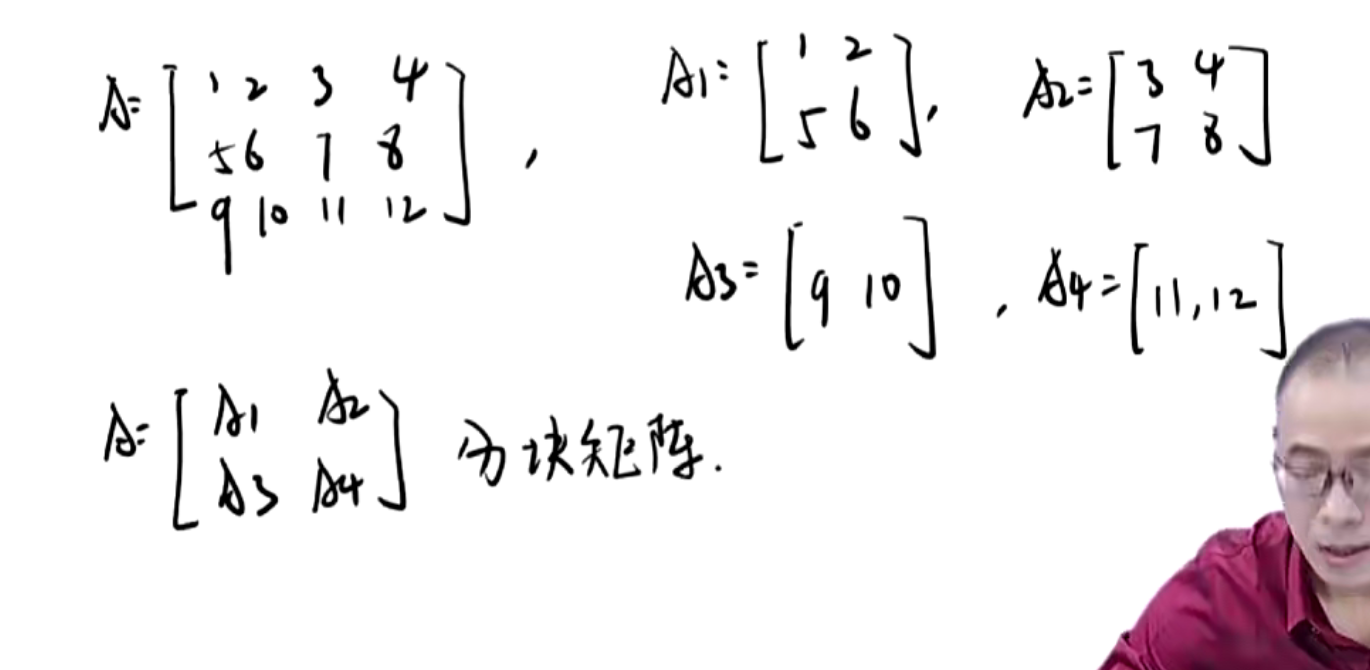 A= [ 1 2 3 4
5 6 7 8
9 10 11 12 ] ,
A1= [ 1 2
5 6 ] , A2= [ 3 4
7 8 ]
A3= [ 9 10 ] , A4= [ 11, 12 ]
A= [ A1 A2
A3 A4 ] 分块矩阵.